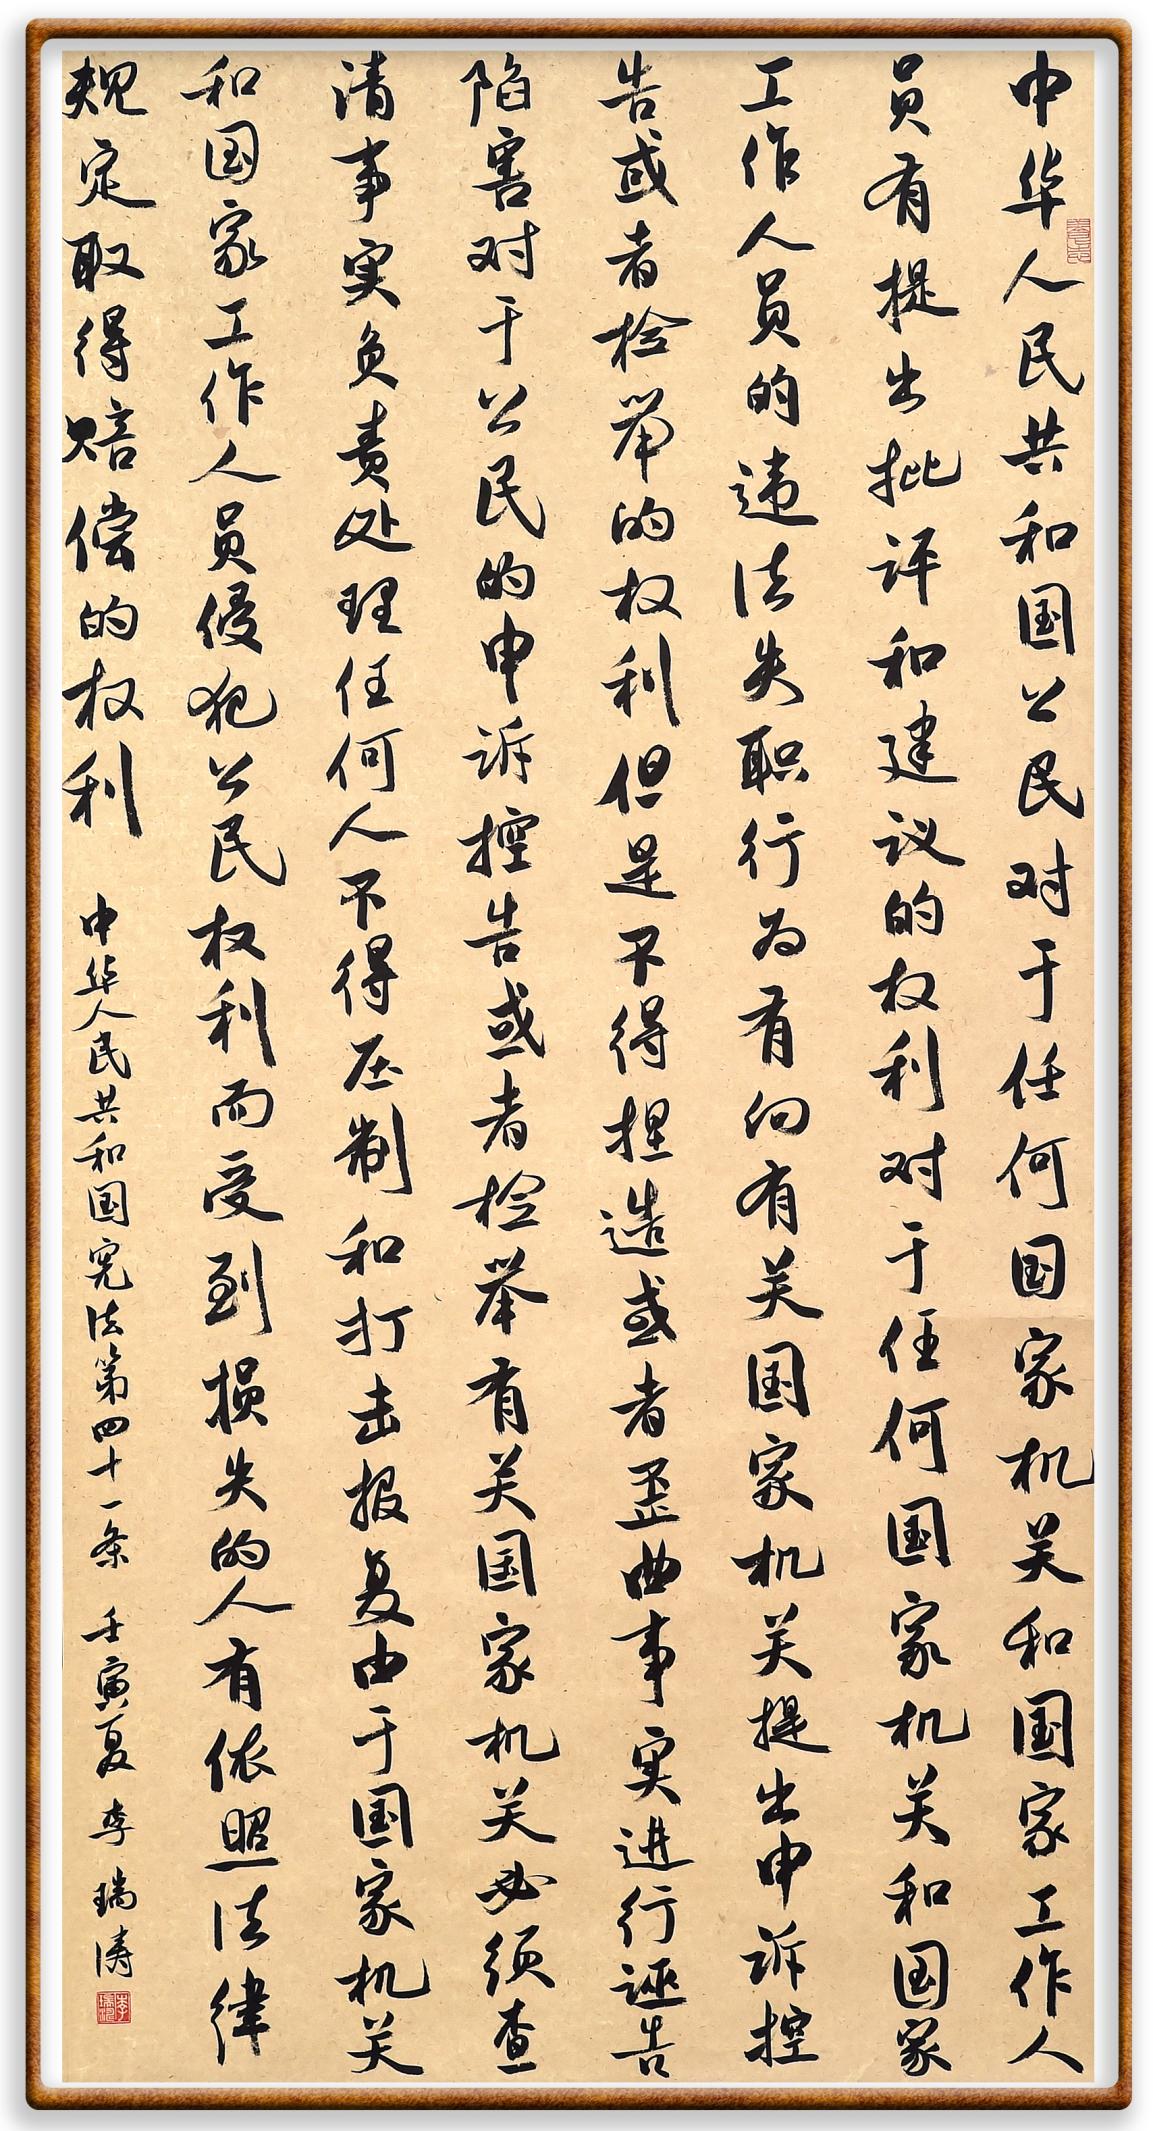 中华人民共和国公民对于任何国家机关和国家工作人
员有提出批评和建议的权利对于任何国家机关和国家
工作人员的违法失职行为有向有关国家机关提出申诉控
告或者检举的权利但是不得捏造或者歪曲事实进行诬告
陷害对于公民的申诉控告或者检举有关国家机关必须查
清事实负责处理任何人不得压制和打击报复由于国家机关
和国家工作人员侵犯公民权利而受到损失的人有依照法律
规定取得赔偿的权利 中华人民共和国宪法第四十一条 壬寅夏 李瑞涛
李瑞涛